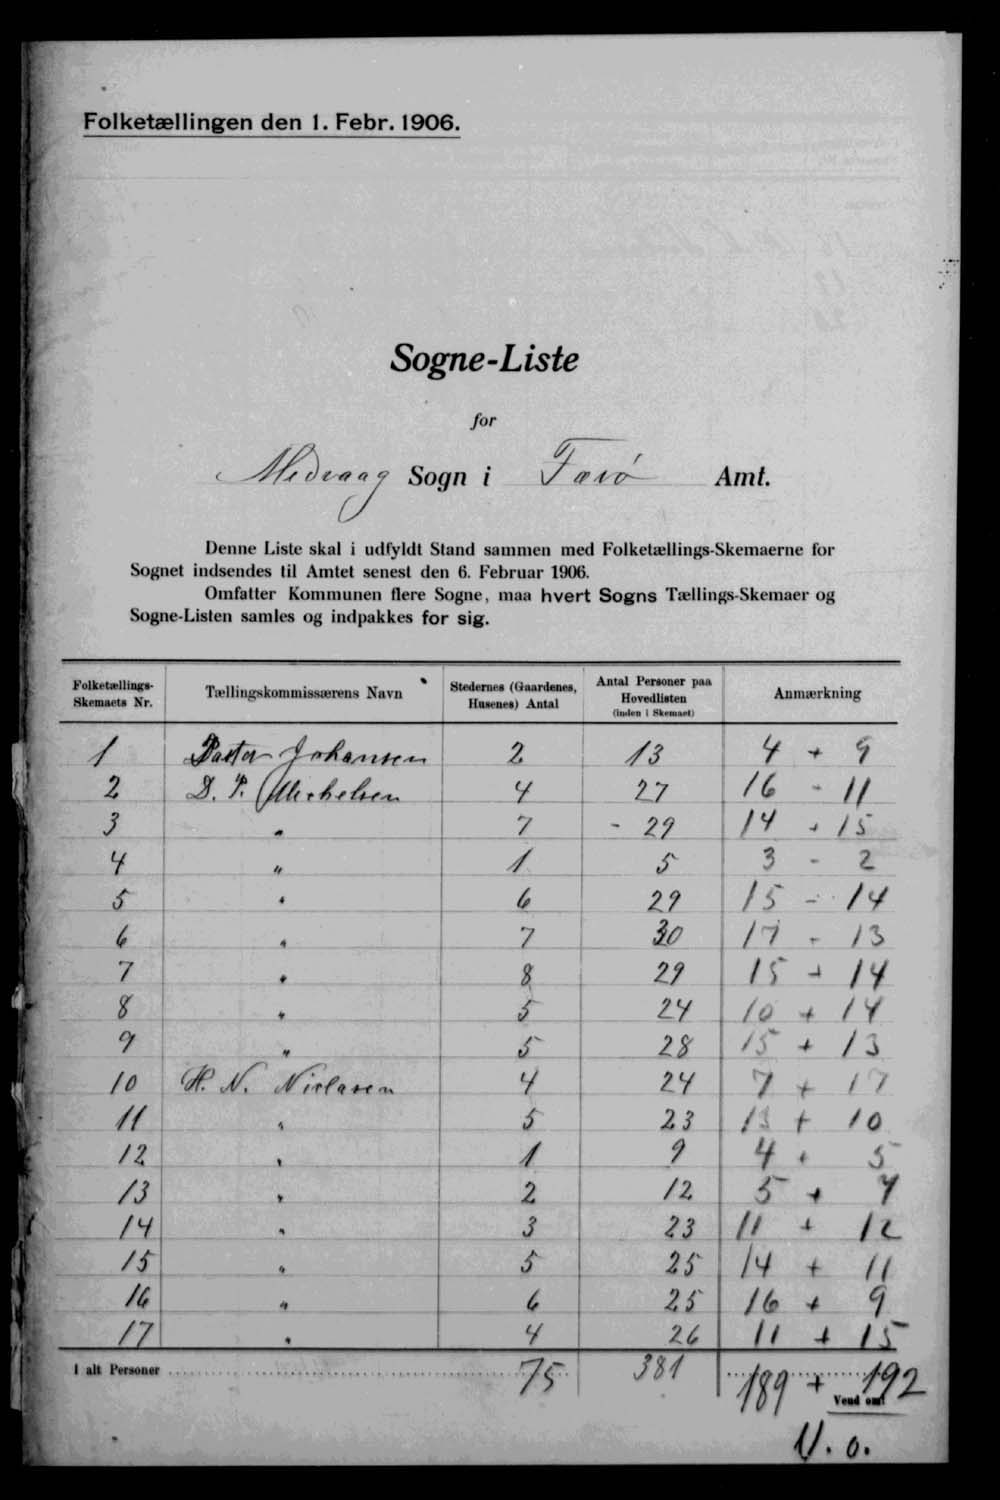 Folketællingen den 1. Febr. 1906.
Sogne-Liste
for
Midvaag Sogn i Færø Amt.
Denne Liste skal i udfyldt Stand sammen med Folketællings-Skemaerne for
Sognet indsendes til Amtet senest den 6. Februar 1906.
Omfatter Kommunen flere Sogne, maa hvert Sogns Tællings-Skemaer og
Sogne-Listen samles og indpakkes for sig.
Folketællings-Skemaets Nr. Tællingskommissærens Navn Stedernes (Gaardenes, Husenes) Antal Antal Personer paa Hovedlisten (inden i Skemaet) Anmærkning
1 Pastor Johansen 2 13 4 + 9
2 D. P. Michelsen 4 27 16 - 11
3 " 7 - 29 14 + 15
4 " 1 5 3 - 2
5 " 6 29 15 - 14
6 " 7 30 17 - 13
7 " 8 29 15 + 14
8 " 5 24 10 + 14
9 " 5 28 15 + 13
10 H. N. Nielasen 4 24 7 + 17
11 " 5 23 13 + 10
12 " 1 9 4 + 5
13 " 2 12 5 + 7
14 " 3 23 11 + 12
15 " 5 25 14 + 11
16 " 6 25 16 + 9
17 " 4 26 11 + 15
I alt Personer 75 381 189 + 192
Vend om!
V. o.